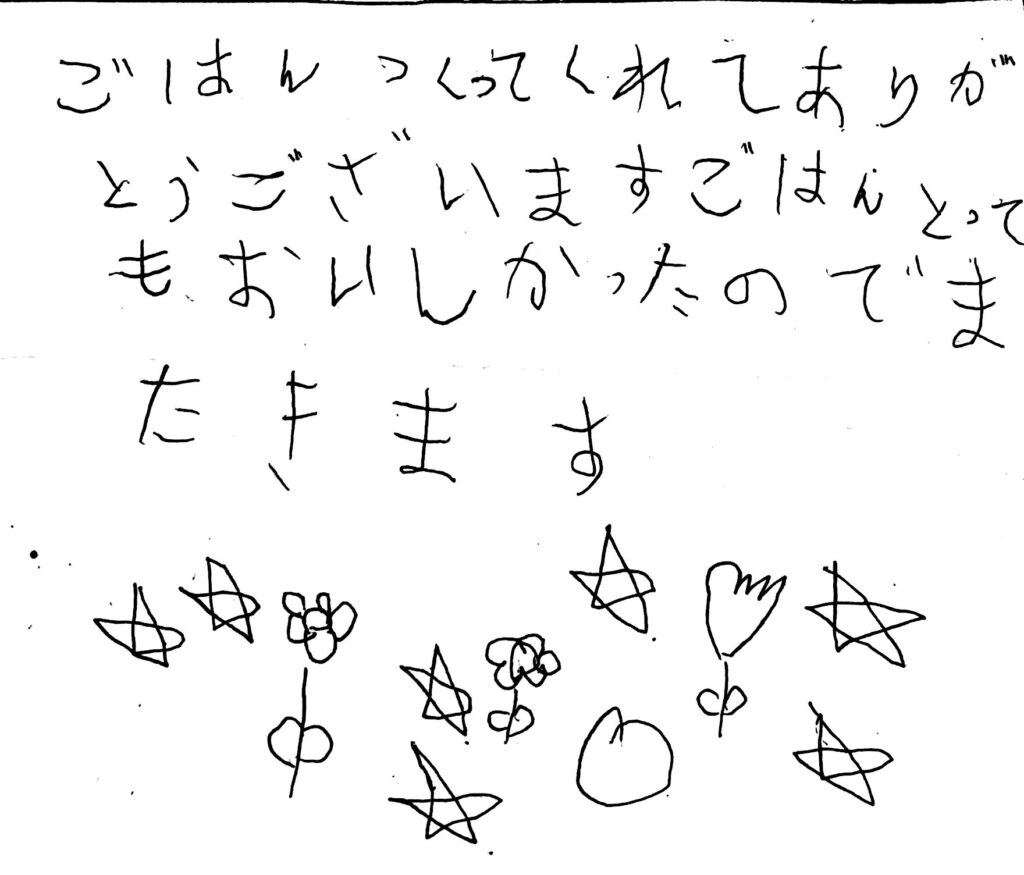 ごはんつくってくれてありが
とうございますごはんとって
もおいしかったのでま
たきます